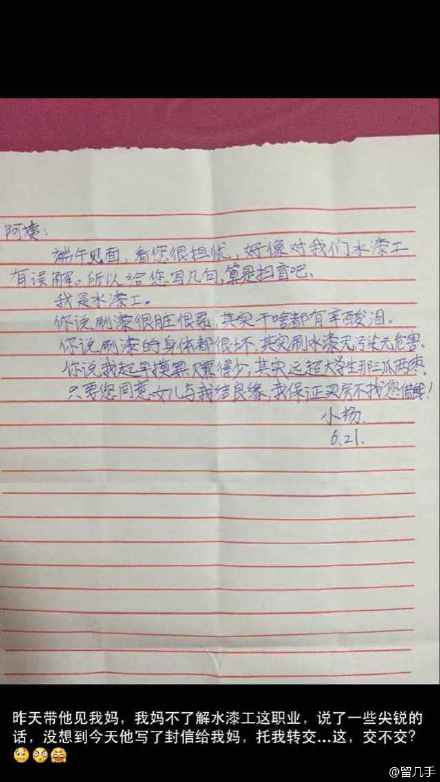 阿姨:
端午见面,看您很担忧,好像对我们水漆工
有误解。所以给您写几句,算是扫盲吧。
我是水漆工。
你说刷漆很脏很累,其实干啥都有辛酸泪。
你说刷漆的身体都很坏,其实刷水漆无污染无危害。
你说我起早摸黑赚得少,其实远超大学生那三瓜两枣。
只要您同意女儿与我结良缘,我保证买房不找您借钱!
小杨
6.21.
昨天带他见我妈,我妈不了解水漆工这职业,说了一些尖锐的
话,没想到今天他写了封信给我妈,托我转交...这,交不交?
@留几手